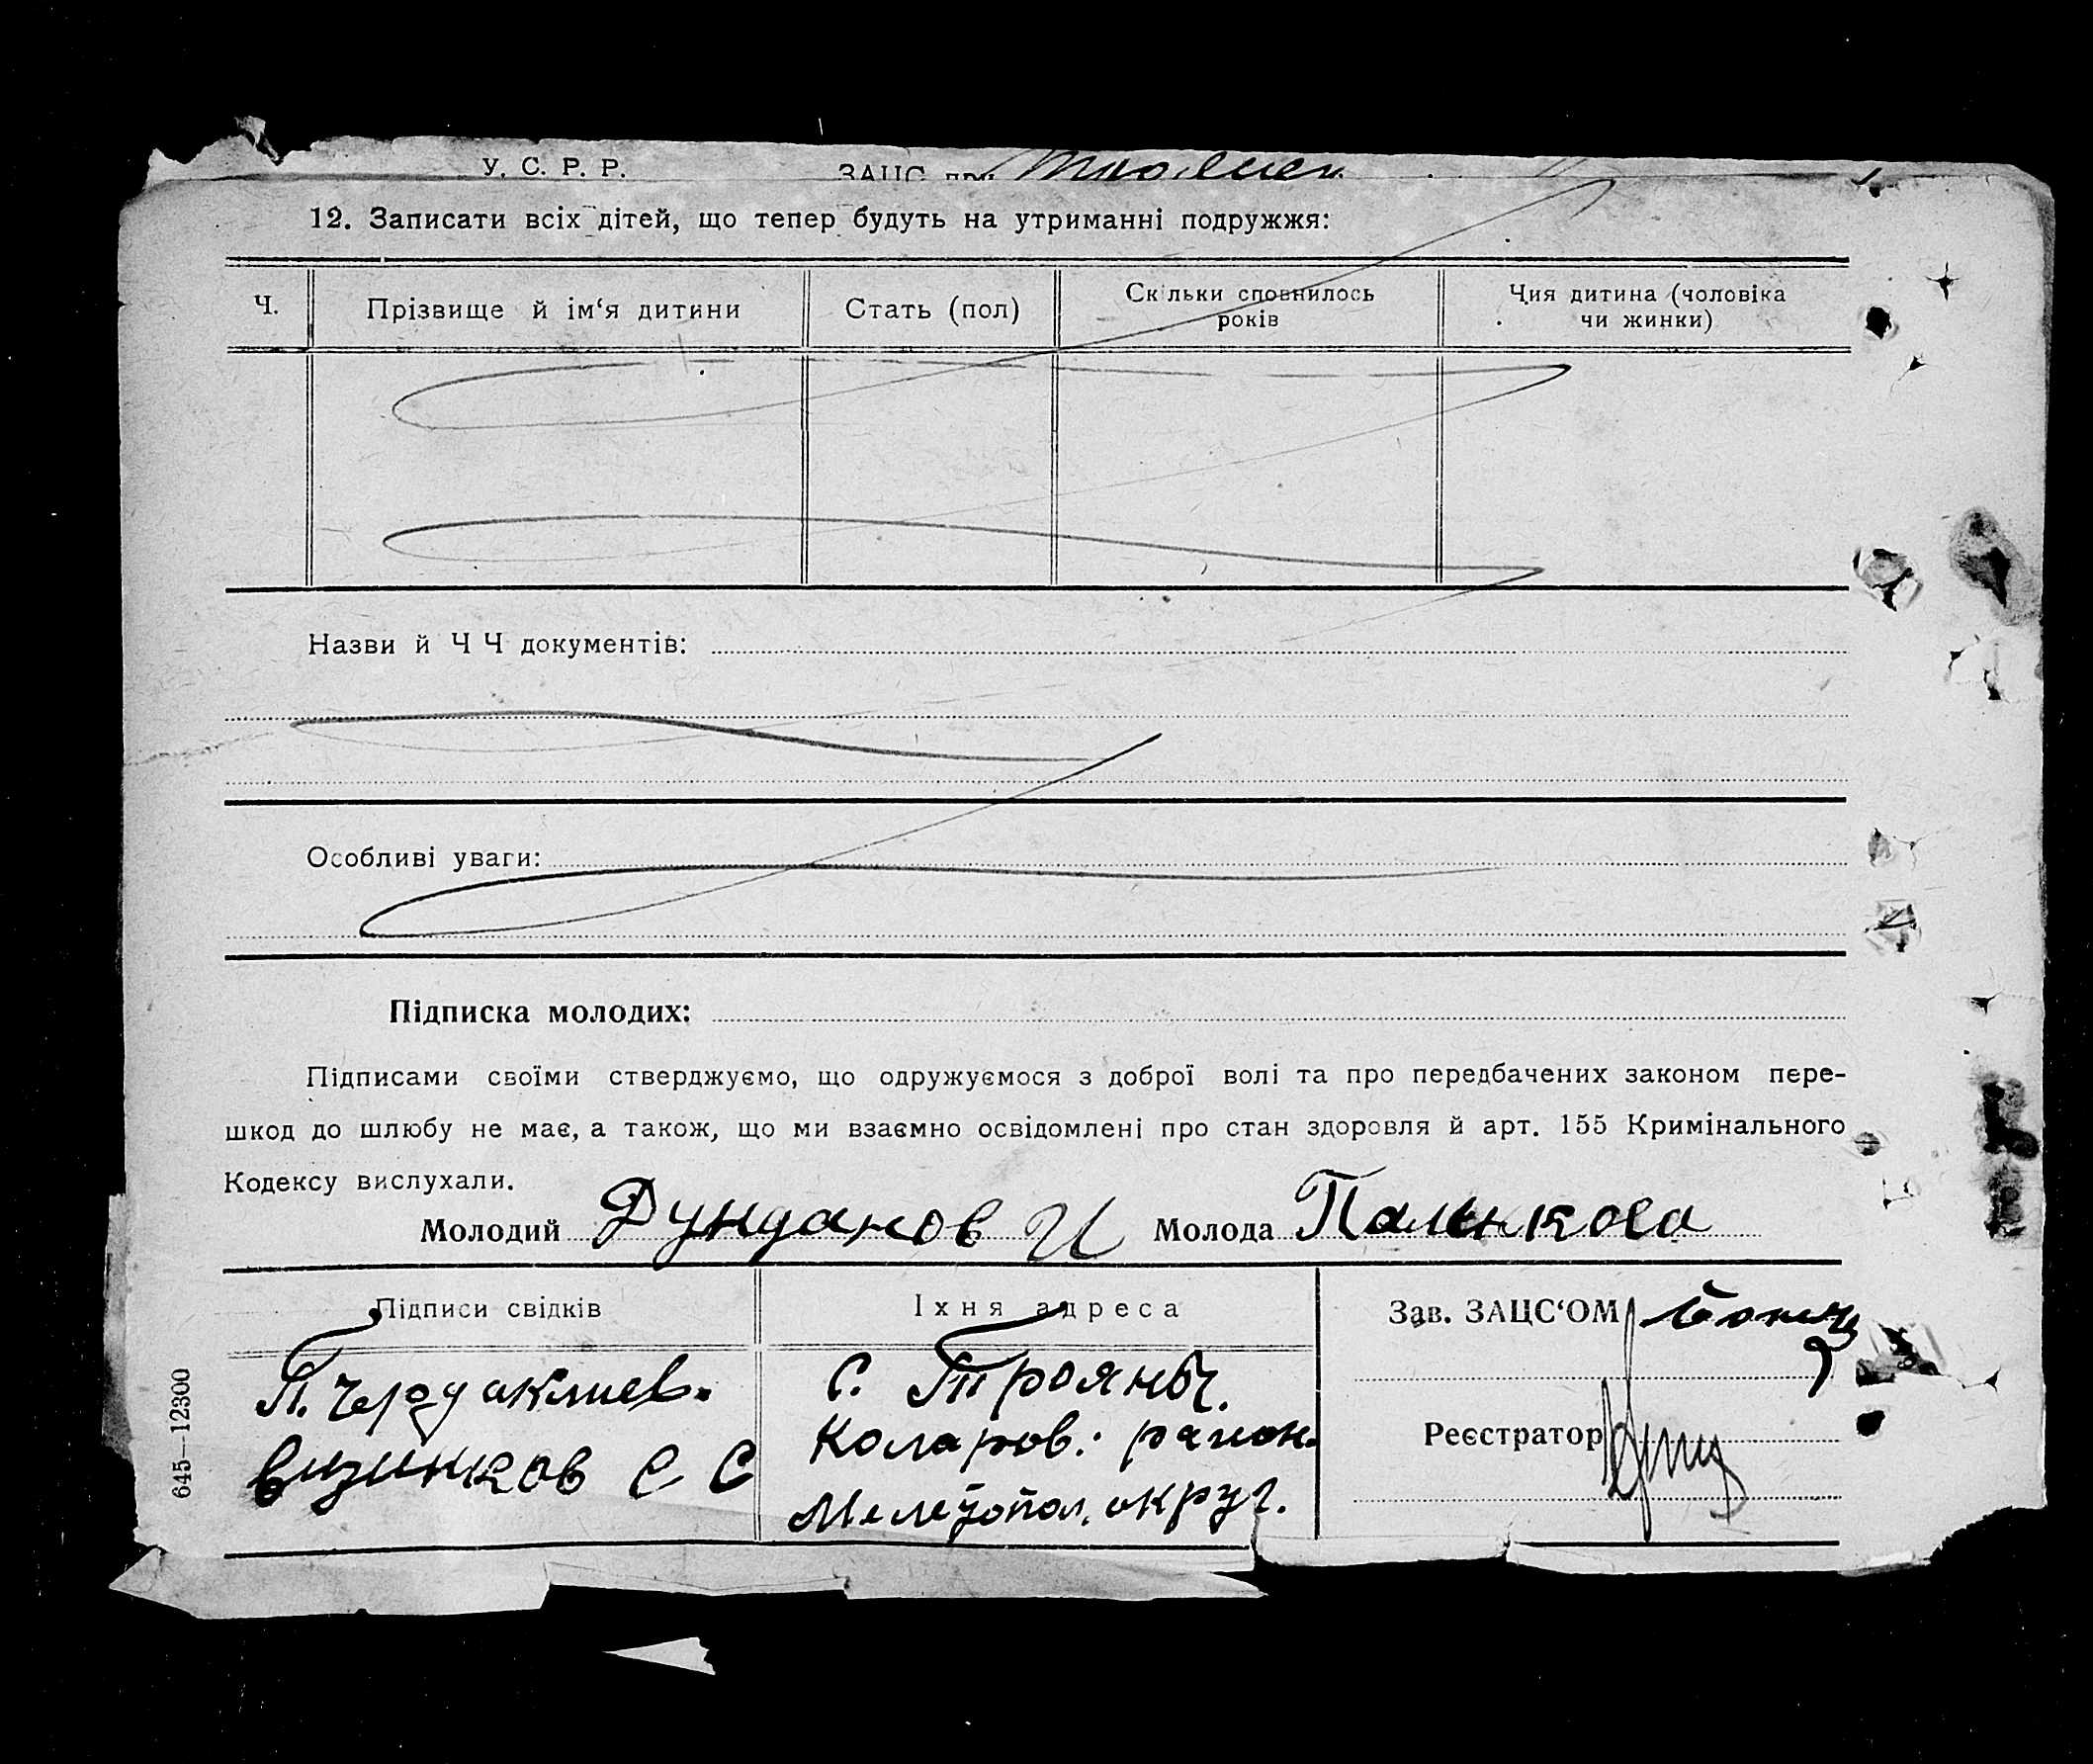 У. С. Р. Р. ЗАЦС при
12. Записати всіх дітей, що тепер будуть на утриманні подружжя:
Ч.
Прізвище й ім‘я дитини
Стать (пол)
Скільки сповнилось
років
Чия дитина (чоловіка
чи жинки)
Назви й Ч Ч документів:
Особливі уваги:
Підписка молодих:
Підписами своїми стверджуємо, що одружуємося з доброї волі та про передбачених законом пере-
шкод до шлюбу не має, а також, що ми взаємно освідомлені про стан здоровля й арт. 155 Кримінального
Кодексу вислухали.
Молодий Дунданов И Молода Паленкова
Підписи свідків
П. Чердаклиев.
Визинков С С
Їхня адреса
С. Трояны.
Коларов: район.
Мелетопол. округ.
Зав. ЗАЦС‘ОМ
Реєстратор
645—12300